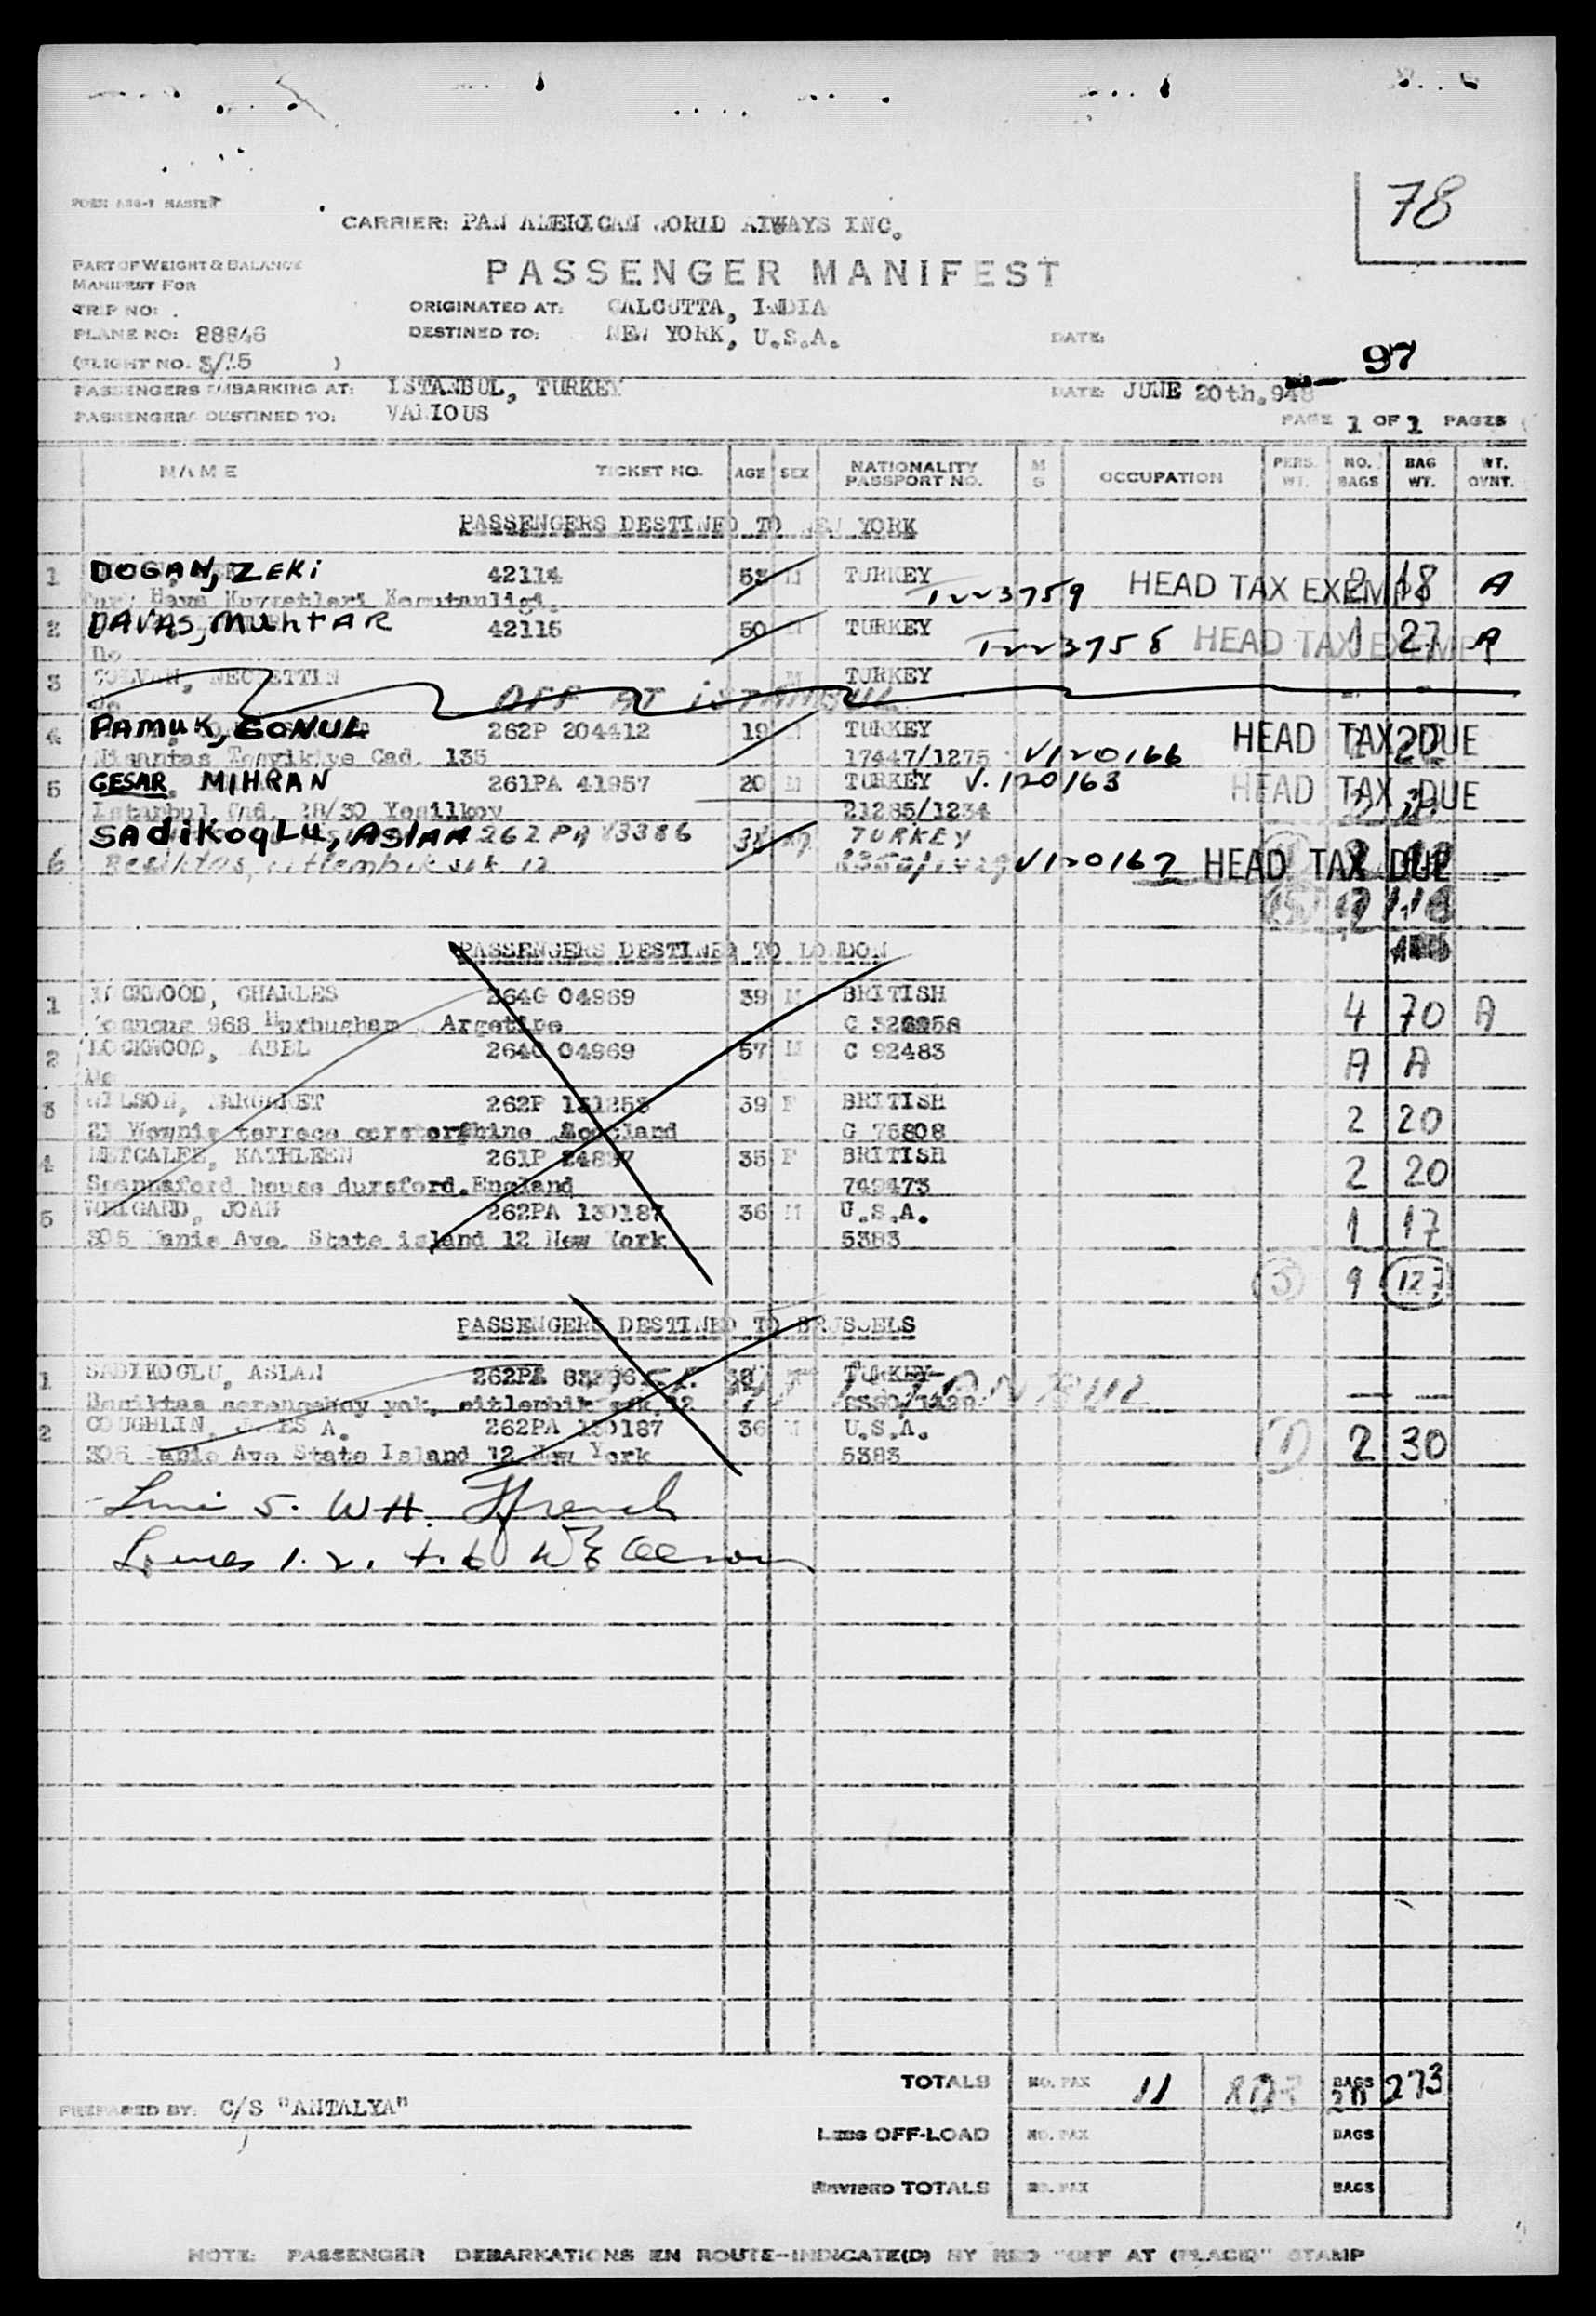 78
CARRIER: PAN AMERICAN WORLD AIWAYS INC.
PART OF WEIGHT & BALANCE
MANIFEST FOR
PASSENGER MANIFEST
TRIP NO:
ORIGINATED AT: CALCUTTA, INDIA
PLANE NO: 88846
DESTINED TO: NEW YORK, U.S.A.
DATE:
(FLIGHT NO. )
97
PASSENGERS EMBARKING AT: ISTANBUL, TURKEY
DATE: JUNE 20th.948
PASSENGERS DESTINED TO: VARIOUS
PAGE 1 OF 1 PAGES
NAME TICKET NO. AGE SEX NATIONALITY PASSPORT NO. M S OCCUPATION PERS. WT. NO. BAGS BAG WT. WT. OVNT.
PASSENGERS DESTINED TO NEW YORK
1 DOGAN, ZEKI 42114 53 M TURKEY HEAD TAX EXEMPT 2 18 A
Hava Kuvvetleri Komutanligi.
2 DAVAS, MUHTAR 42115 50 M TURKEY HEAD TAX EXEMPT 1 27 A
Do
3 NECMETTIN M TURKEY
OFF AT ISTANBUL
4 PAMUK, GONUL 262P 204412 19 TURKEY HEAD TAX DUE
Nisantas Tesvikiye Cad. 135 17447/1275 V120166
5 GESAR MIHRAN 261PA 41957 20 M TURKEY V.120163 HEAD TAX DUE
Istanbul Cad. 28/30 Yesilkoy 21285/1234
SADIKOGLU, ASLAN 262 PA 83386 38 M TURKEY
6 Besiktas, citlembik sok 12 V120167 HEAD TAX DUE
PASSENGERS DESTINED TO LONDON
1 LOCKWOOD, CHARLES 264G 04969 39 M BRITISH 4 70 A
968 Argetine
2 LOCKWOOD, MABEL 264G 04969 57 M C 92483 A A
Do
3 WILSON, MARGARET 262P 131253 39 F BRITISH 2 20
21 terrace Scotland G 76808
4 METCALFE, KATHLEEN 261P 24837 35 F BRITISH 2 20
house dursford.England 749473
5 WEIGAND, JOAN 262PA 130187 36 M U.S.A. 1 17
305 Ave. State island 12 New York 5383
5 9 127
PASSENGERS DESTINED TO BRUSSELS
1 SADIKOGLU, ASLAN 262PA TURKEY
Besiktas citlembik sok, 12
2 COUGHLIN, JAMES A. 262PA 130187 36 M U.S.A. 1 2 30
305 Ave State Island 12 New York 5383
Line 5. WH. Ffrench
Lines 1. 2. 4. 6
TOTALS NO. PAX 11 BAGS 20 273
PREPARED BY: C/S "ANTALYA"
LESS OFF-LOAD NO. PAX BAGS
REVISED TOTALS NO. PAX BAGS
NOTE: PASSENGER DEBARKATIONS EN ROUTE--INDICATE(D) BY RED "OFF AT (PLACE)" STAMP